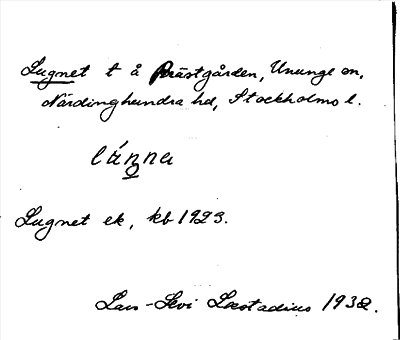 Lugnet t å Prästgården, Ununge sn,
Närdinghundra hd, Stockholms l.
Lugnet ek, kb 1923.
Lars-Levi Læstadius 1938.